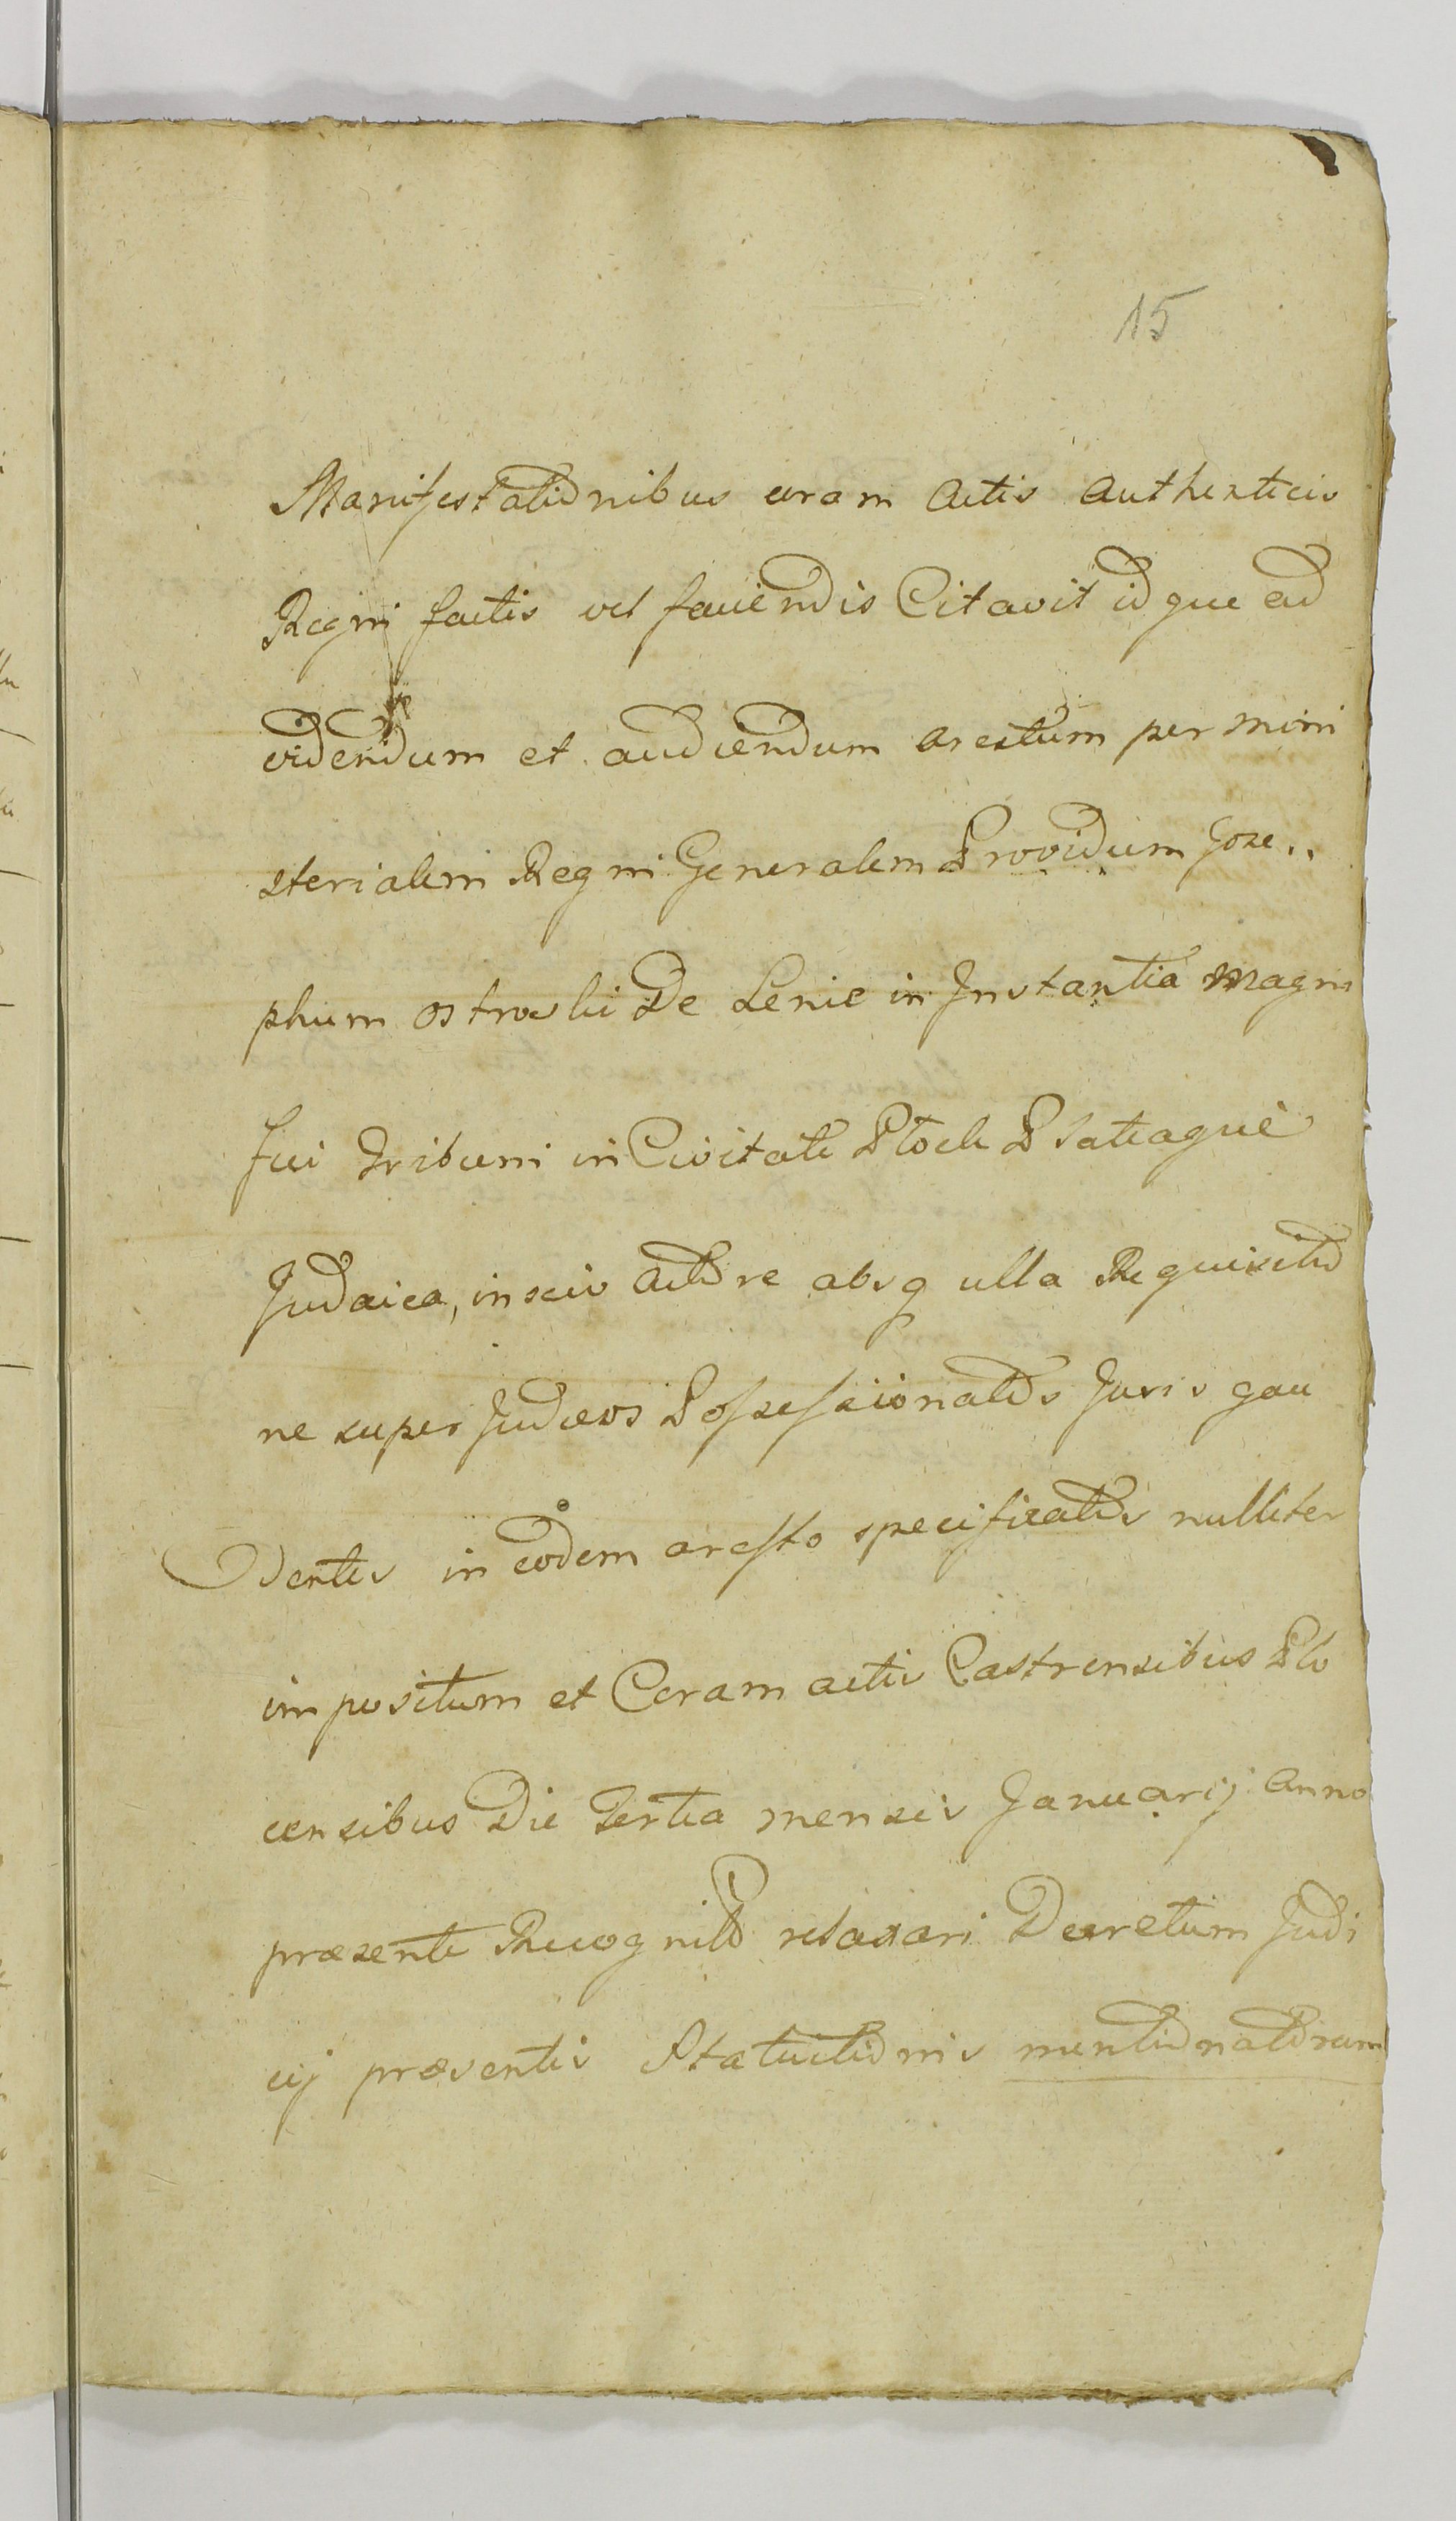 15
Manifestationibus coram Actis Authenticis
Regni factis vel faciendis Citavit idque ad
videndum et audiendum arestum per Mini
sterialem Regni Generalem Providum Jose..
phum Ostrowski De Lenie in Instantia Magni
fici Tribuni in Civitate Plock Plateaque
Judaica, inscio Actore absq ulla Requisitio
ne super Judæos Possessionatos Juris gau
dentes in eodem aresto specificatos nulliter
impositum et Coram actis Castrensibus Plo
censibus Die Tertia mensis Januarij Anno
præsente Recognito relaxari Decretum Judi
cij præsentis Statuitionis mentionatorum